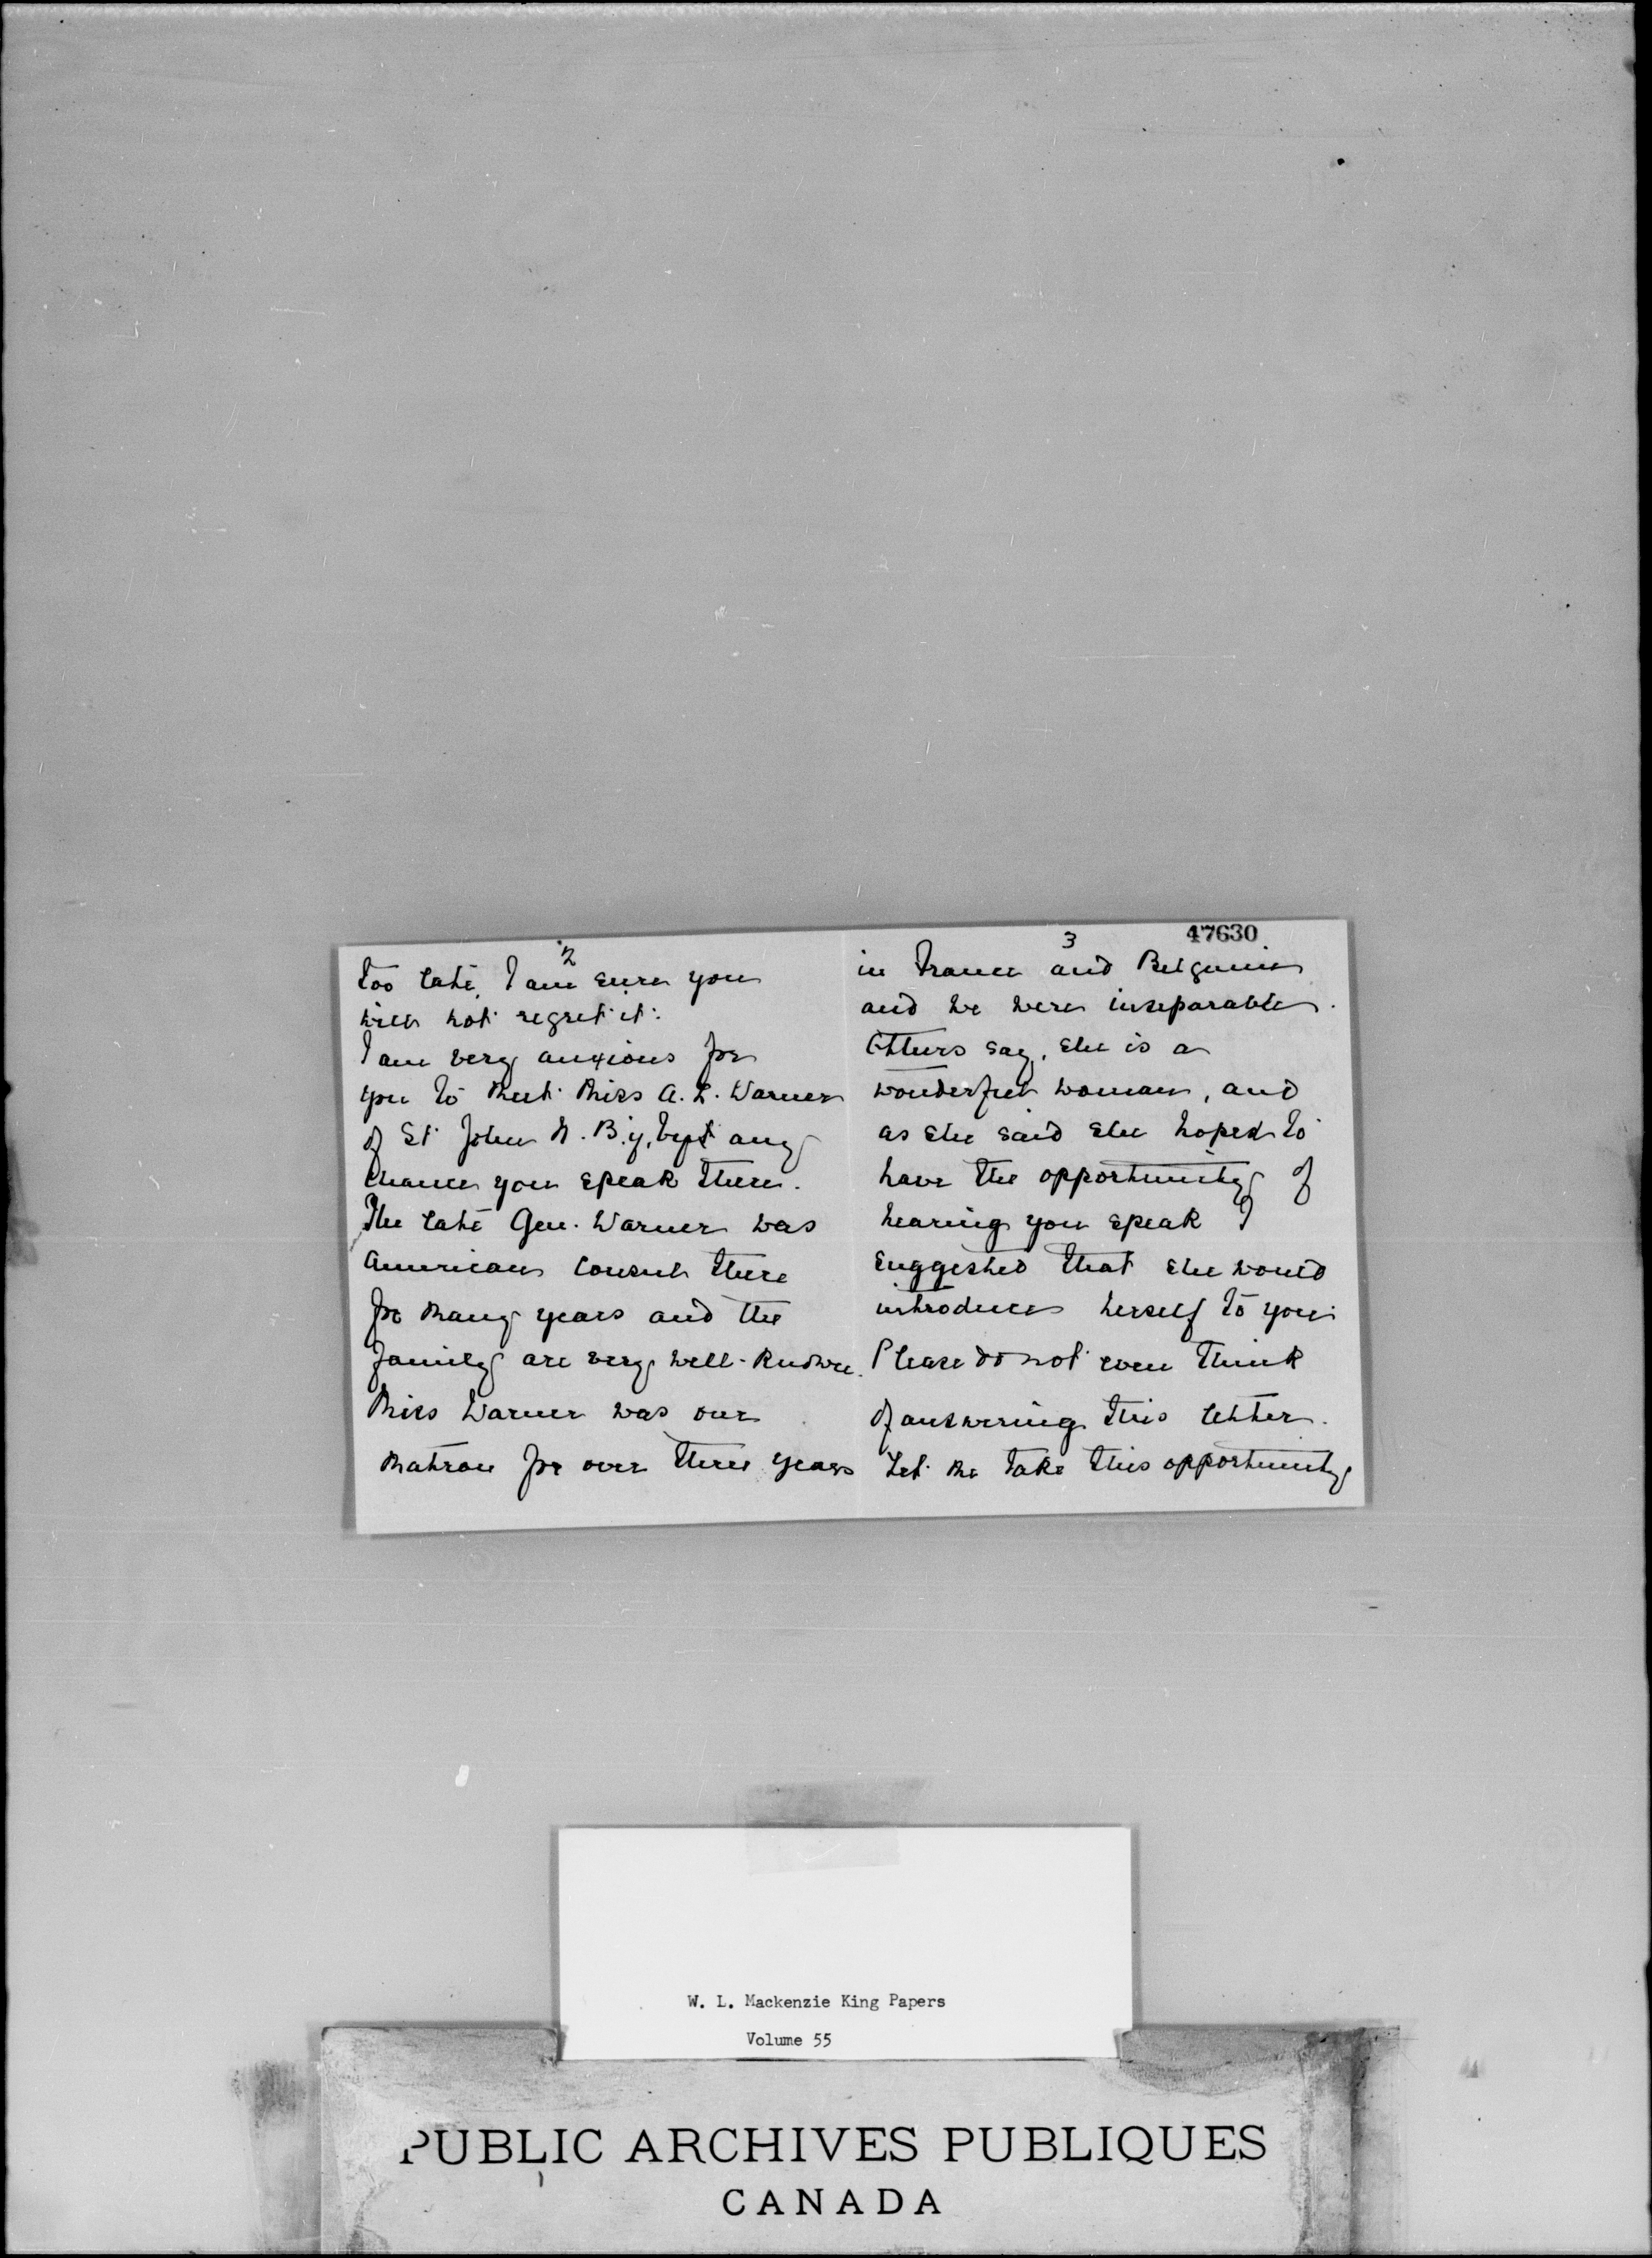 2
too late, I am sure you
will not regret it.
I am very anxious for
you to meet Miss A. L. Warner
of St John N.B. if, by any
chance you speak there.
The late Gen. Warner was
American Consul there
for many years and the
family are very well-known.
Miss Warner was our
Matron for over three years
3
47630
in France and Belgium
and we were inseparable.
Others say, she is a
wonderful woman, and
as she said she hoped to
have the opportunity of
hearing you speak I
suggested that she would
introduce herself to you.
Please do not even think
of answering this letter.
Let me take this opportunity
W. L. Mackenzie King Papers
Volume 55
PUBLIC ARCHIVES PUBLIQUES
CANADA